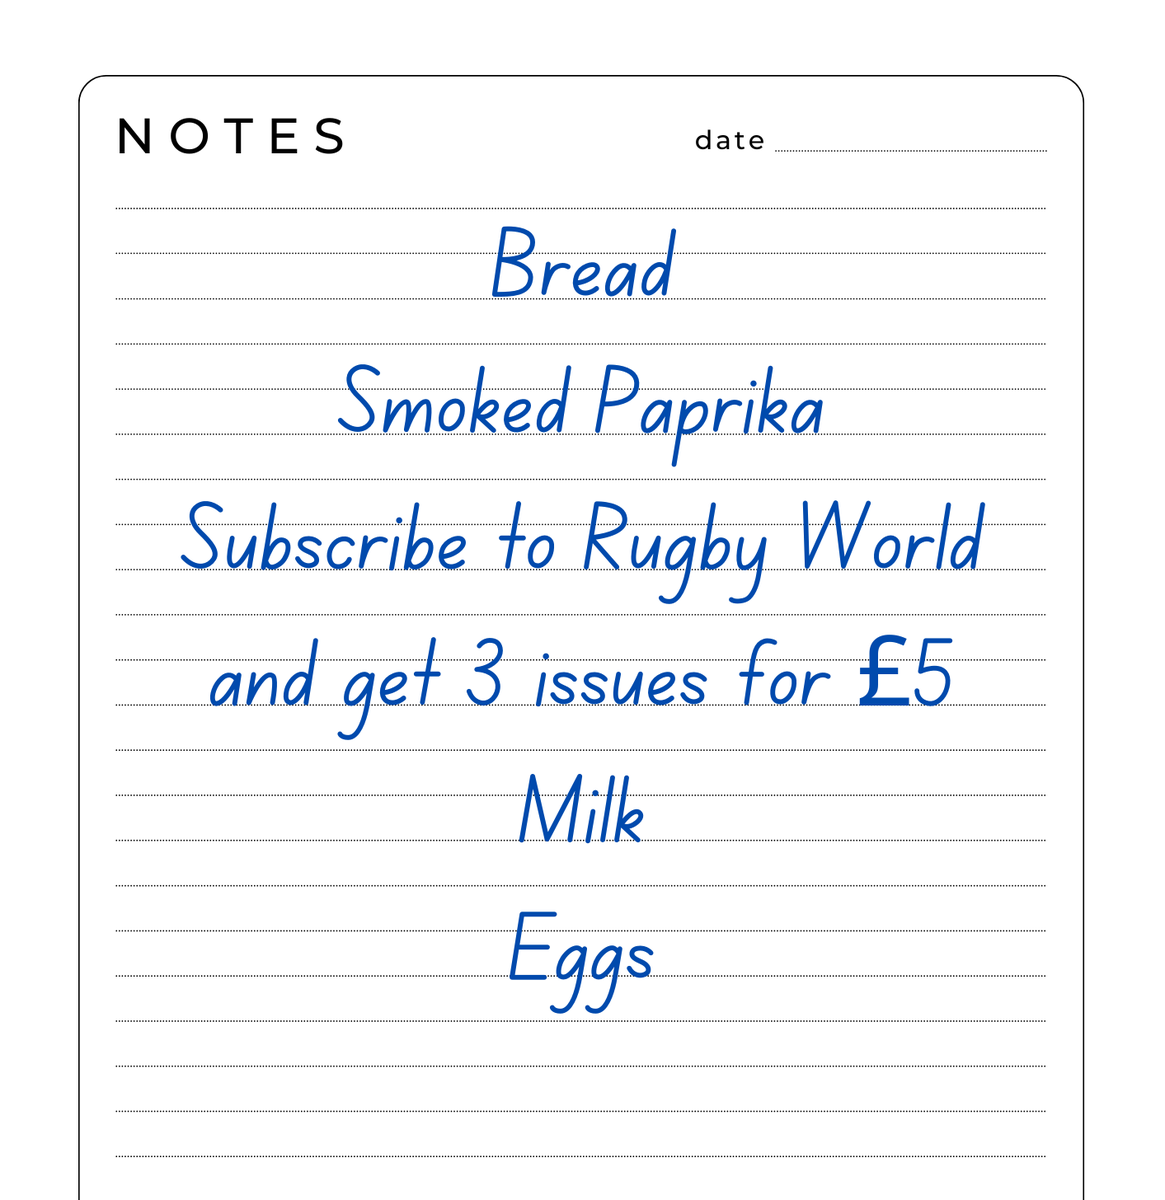 NOTES
date
Bread
Smoked Paprika
Subscribe to Rugby World
and get 3 issues for £5
Milk
Eggs